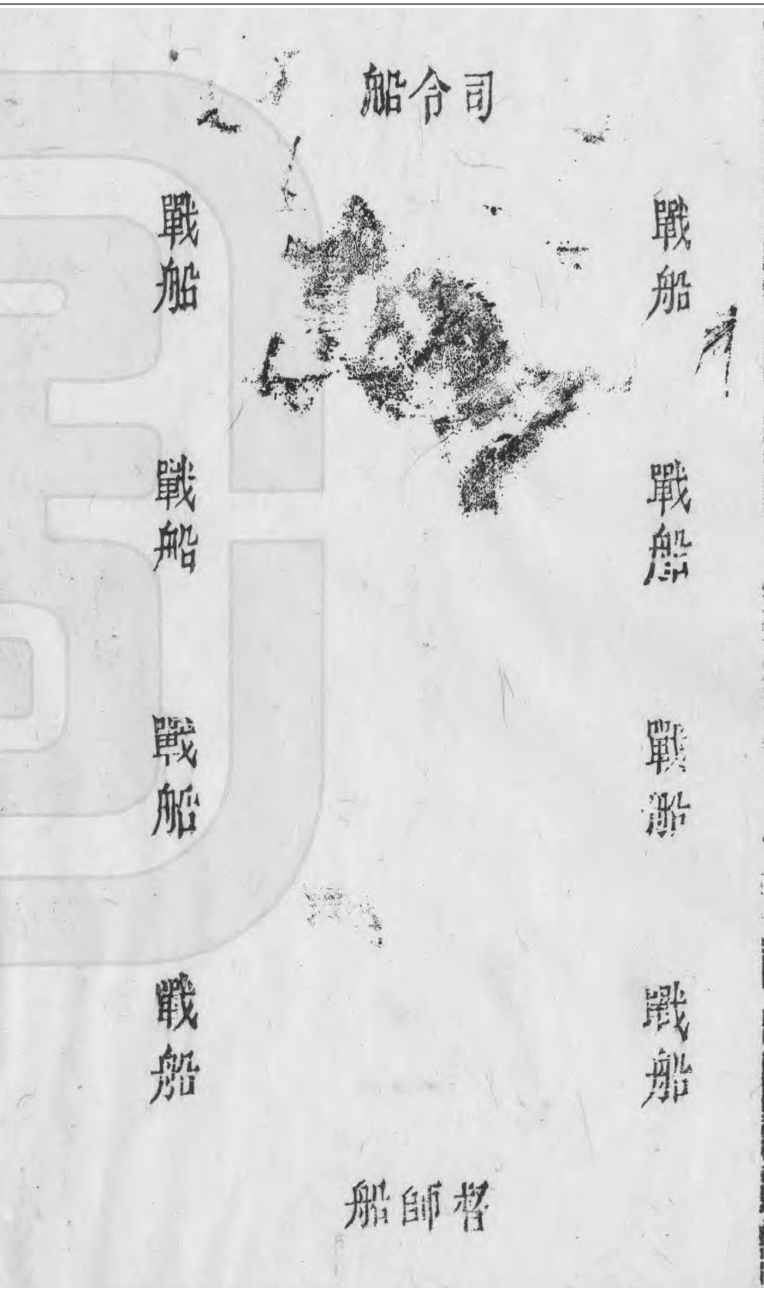 司令船
戰船
戰船
戰船
戰船
戰船
戰船
戰船
戰船
督師船